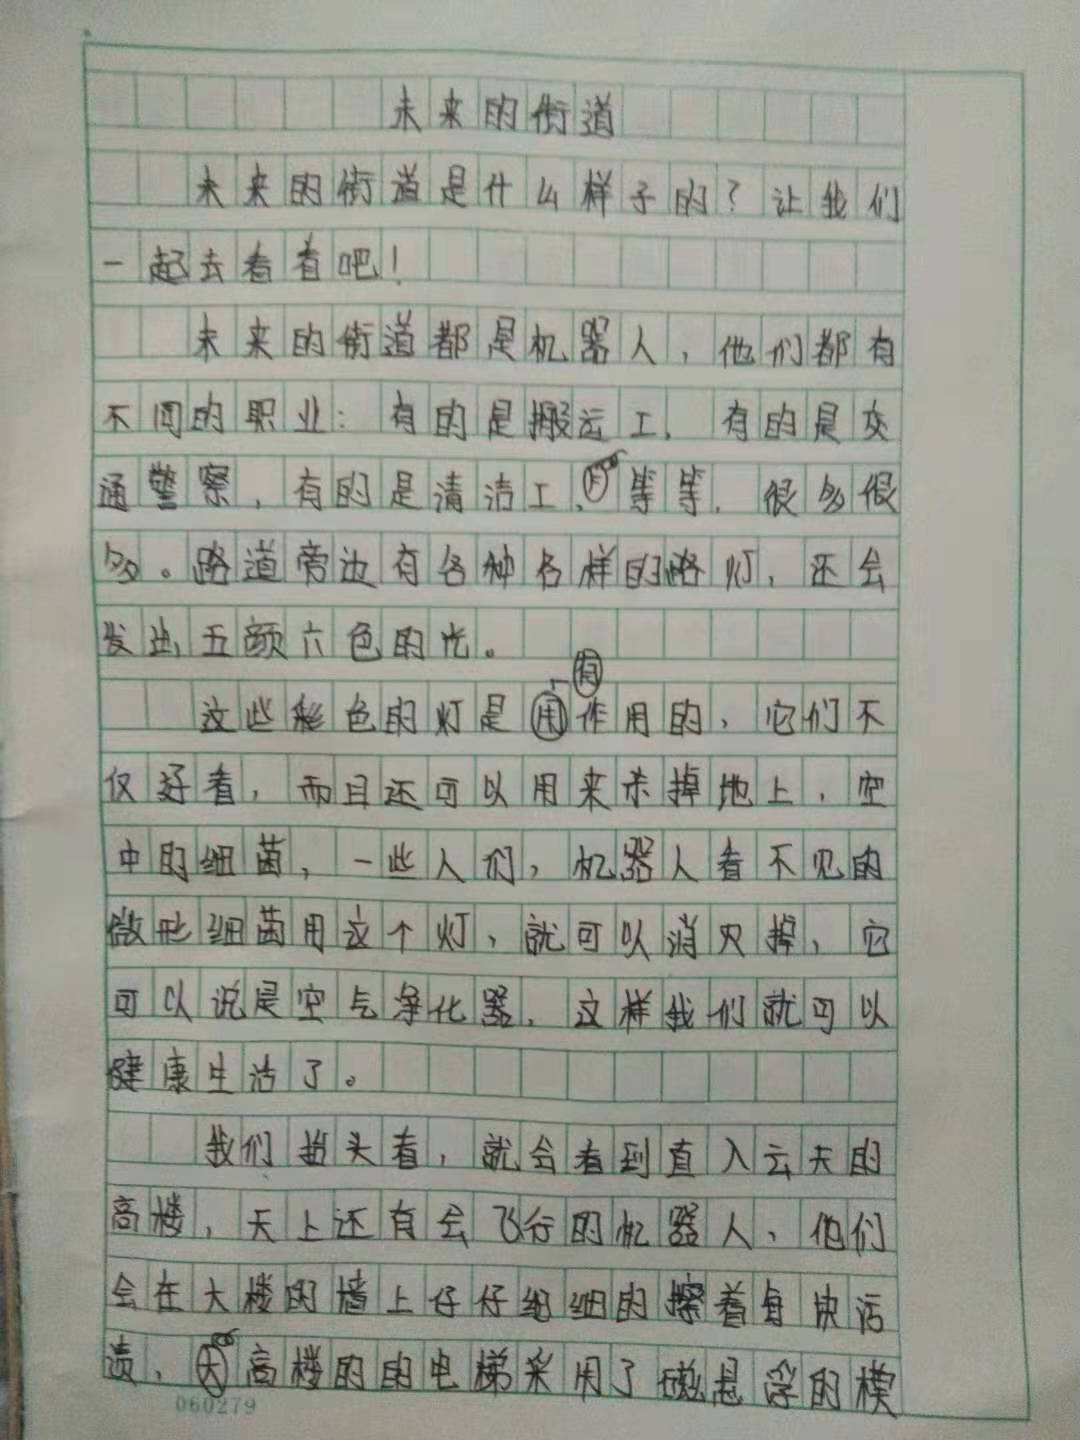 未来的街道
未来的街道是什么样子的？让我们
一起去看看吧！
未来的街道都是机器人，他们都有
不同的职业：有的是搬运工，有的是交
通警察，有的是清洁工，等等，很多很
多。路道旁边有各种各样的路灯，还会
发出五颜六色的光。
有
这些彩色的灯是作用的，它们不
仅好看，而且还可以用来杀掉地上，空
中的细菌，一些人们，机器人看不见的
微形细菌用这个灯，就可以消灭掉，它
可以说是空气净化器，这样我们就可以
健康生活了。
我们抬头看，就会看到直入云天的
高楼，天上还有会飞行的机器人，他们
会在大楼的墙上仔仔细细的擦着每块污
渍，高楼的的电梯采用了磁悬浮的模
060279